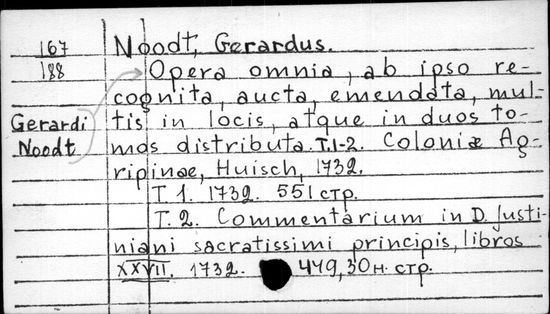 167
188
Gerardi
Noodt
Noodt, Gerardus.
Opera omnia, ab ipso re-
cognita, aucta, emendata, mul-
tis in locis, atque in duos to-
mos distributa. T.1-2. Coloniæ Ag-
ripinae, Huisch, 1732.
T. 1. 1732. 551 стр.
T. 2. Commentarium in D. Justi-
niani sacratissimi principis, libros
XXVII. 1732. 449, 30 н. стр.